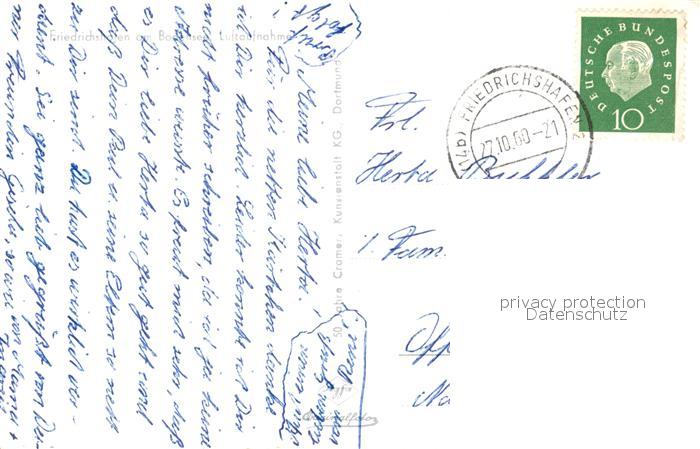 Friedrichshafen am Bodensee, Luftaufnahme
Meine liebe Herta!
Für die netten Kärtchen danke
ich Dir herzlich. Leider konnte ich Dir
nicht früher schreiben, da ich ja keine
Adresse wusste. Es freut mich sehr, daß
es Dir liebe Herta so gut geht und
daß Dein Paul u. seine Eltern so nett
zu Dir sind. Du hast es wirklich ver-
dient. Sei ganz lieb gegrüßt von Dei-
ner Freundin Gisela, sowie von Mama +
50 Jahre Cramer, Kunstanstalt KG., Dortmund
Originalfoto
(14b) FRIEDRICHSHAFEN 2
27.10.60-21
DEUTSCHE BUNDESPOST
10
Frl.
Herta
i. Fam.
privacy protection
Datenschutz